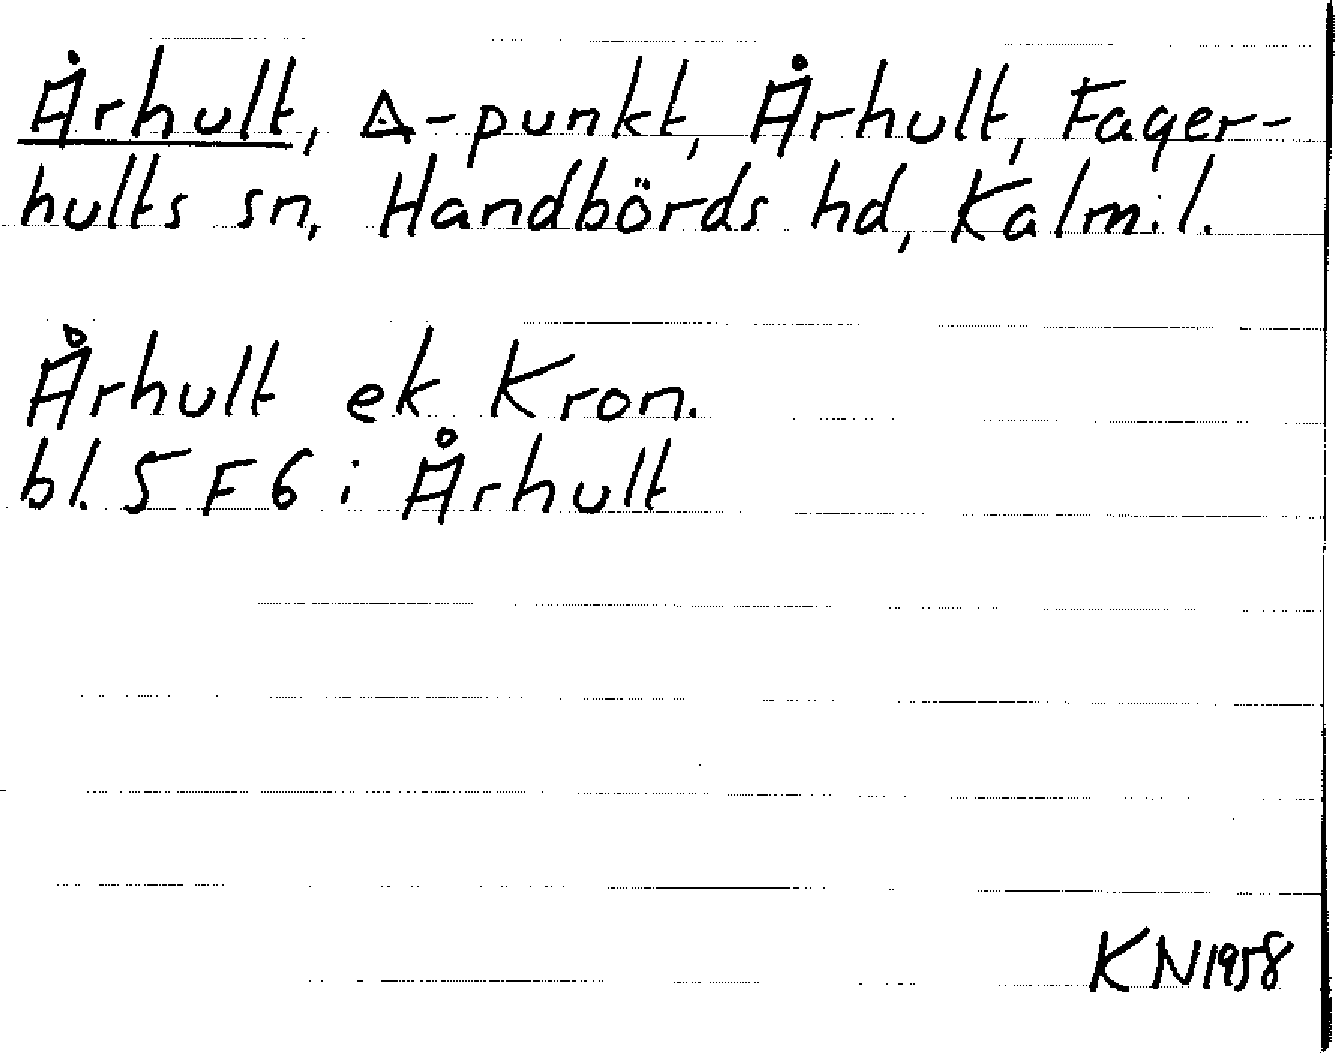 Århult, △-punkt, Århult, Fager-
hults sn, Handbörds hd, Kalm. l.
Århult ek Kron.
bl. 5 F 6 i Århult
KN 1958